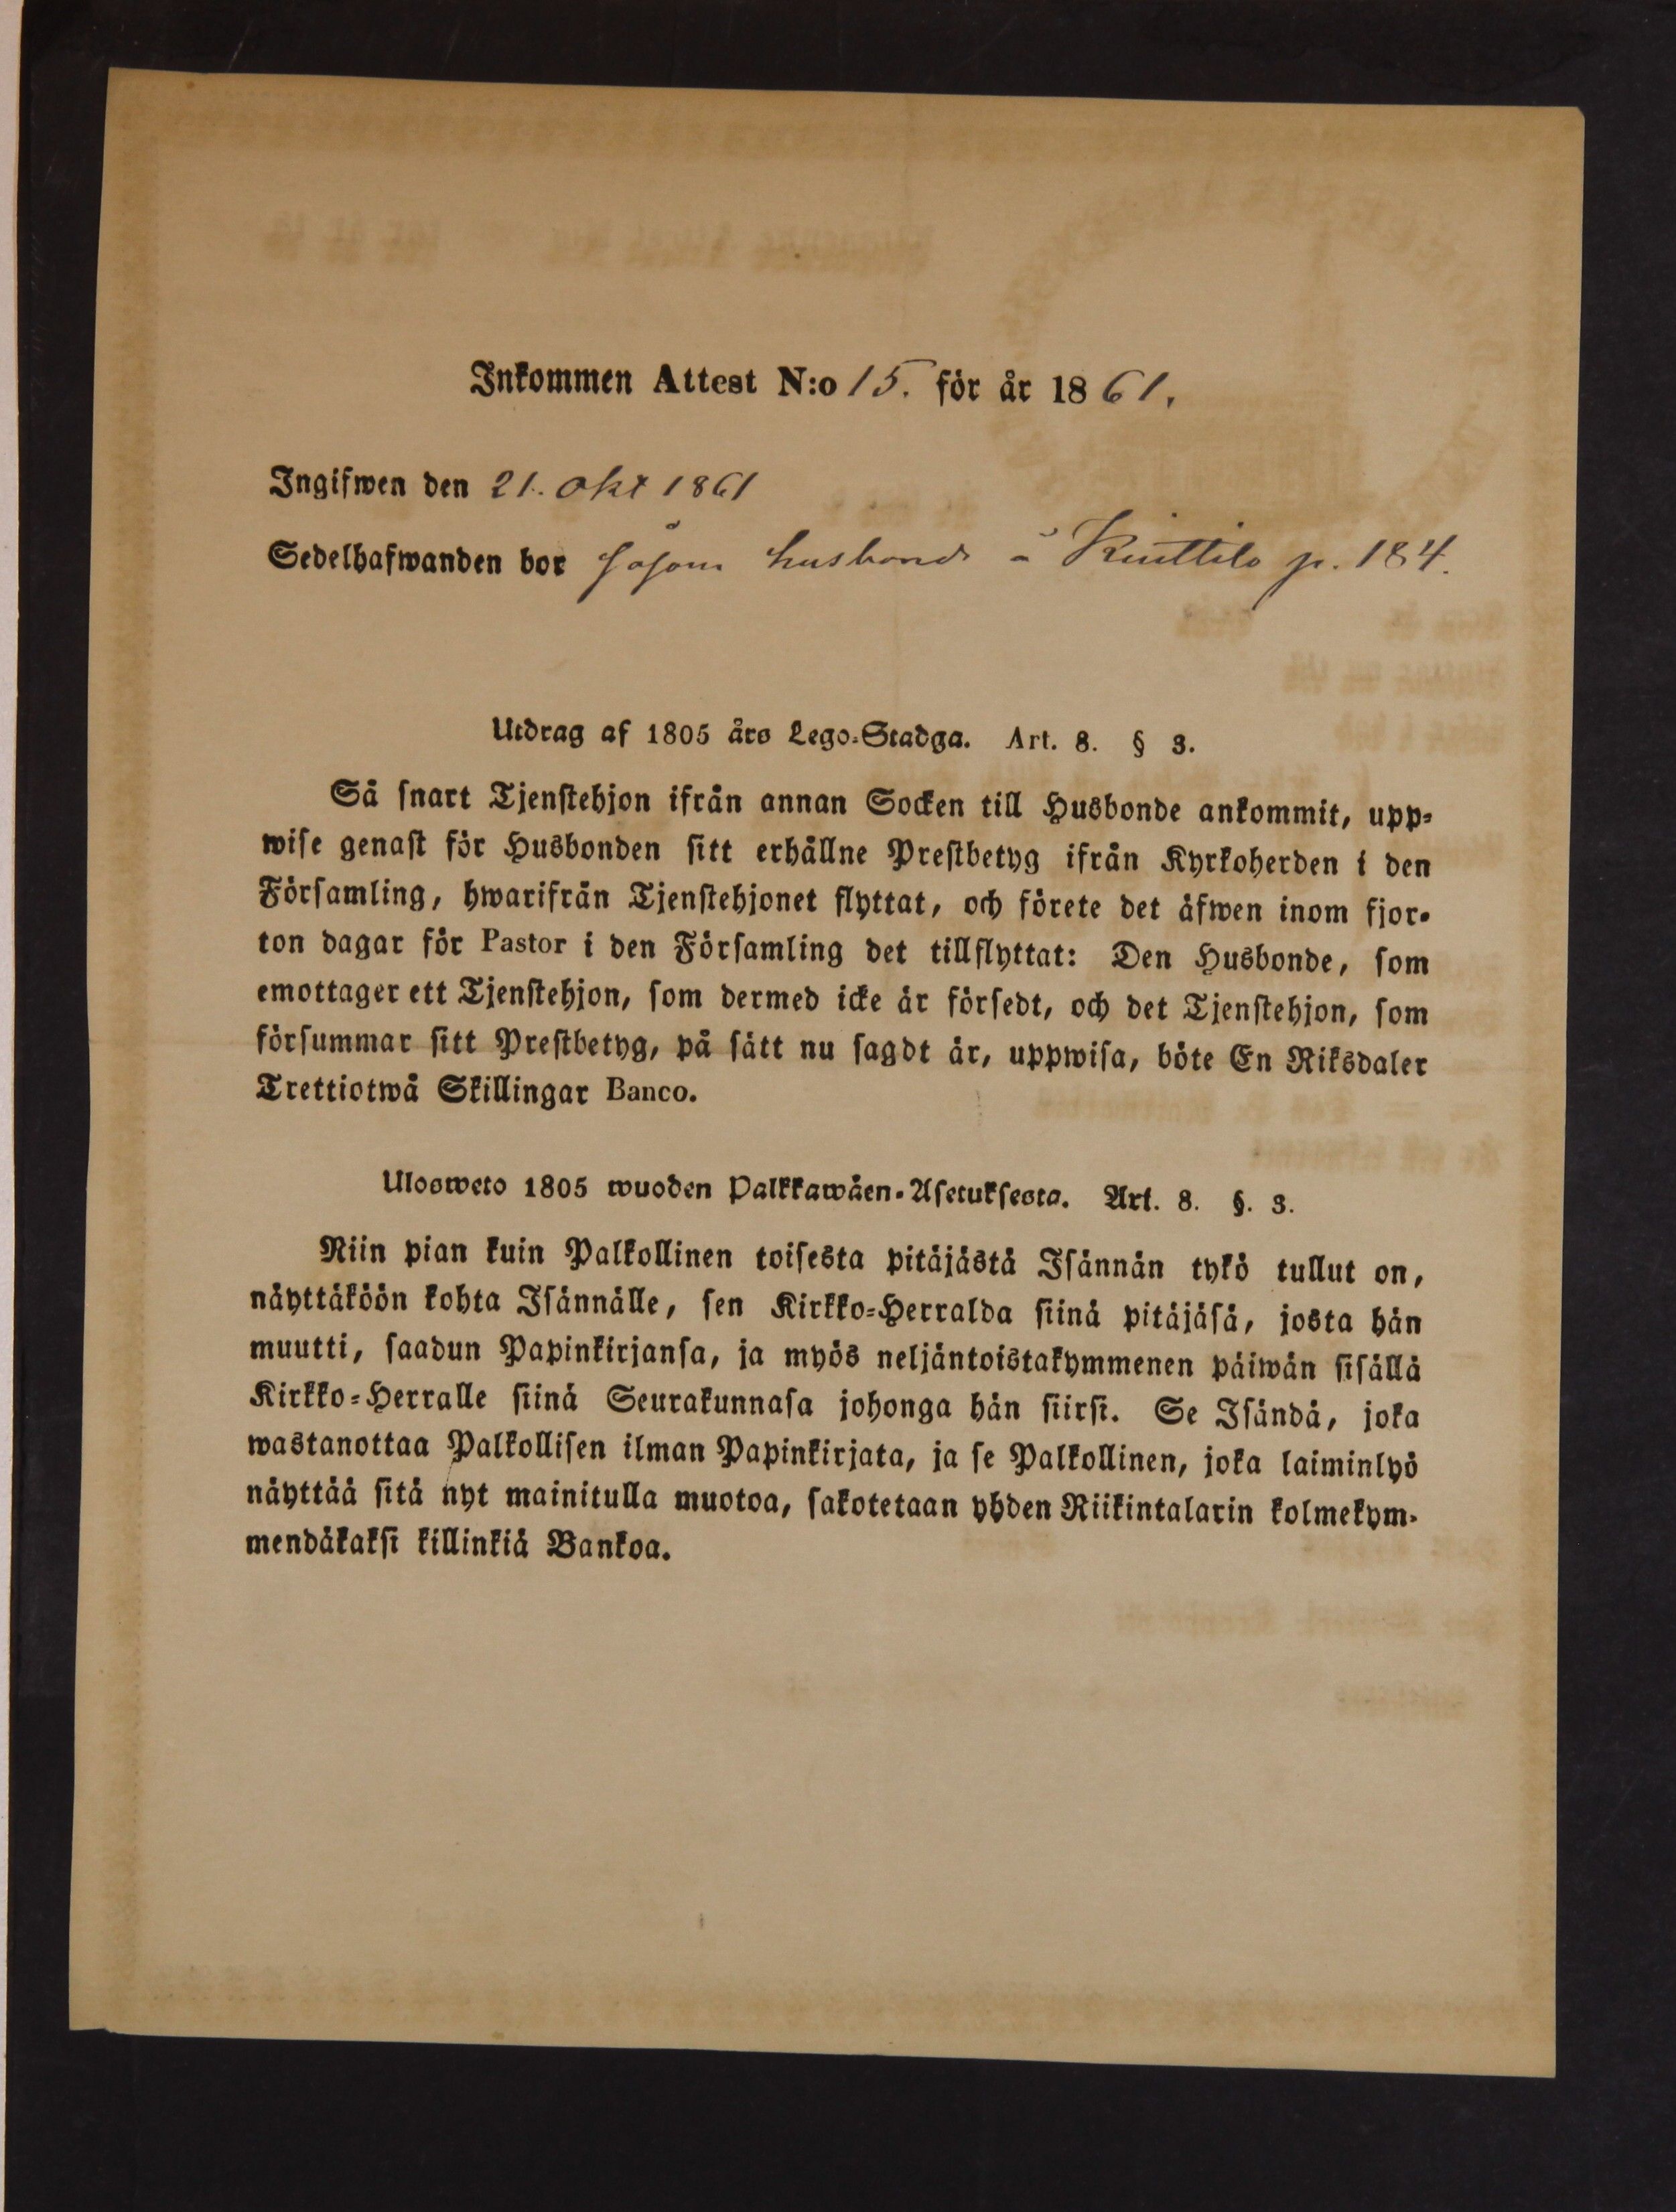 Inkommen Attest N:o 15. för år 1861.
Ingifwen den 21. Okt 1861
Sedelhafwanden bor såsom husbonde å p. 184.
Utdrag af 1805 års Lego-Stadga. Art. 8. § 3.
Så snart Tjenstehjon ifrån annan Socken till Husbonde ankommit, upp-
wise genast för Husbonden sitt erhållne Prestbetyg ifrån Kyrkoherden i den
Församling, hwarifrån Tjenstehjonet flyttat, och förete det äfwen inom fjor-
ton dagar för Pastor i den Församling det tillflyttat: Den Husbonde, som
emottager ett Tjenstehjon, som dermed icke är försedt, och det Tjenstehjon, som
försummar sitt Prestbetyg, på sätt nu sagdt är, uppwisa, böte En Riksdaler
Trettiotwå Skillingar Banco.
Ulosweto 1805 wuoden Palkkawäen-Asetuksesta. Art. 8. §. 3.
Niin pian kuin Palkollinen toisesta pitäjästä Isännän tykö tullut on,
näyttäköön kohta Isännälle, sen Kirkko-Herralda siinä pitäjäsä, josta hän
muutti, saadun Papinkirjansa, ja myös neljäntoistakymmenen päiwän sisällä
Kirkko-Herralle siinä Seurakunnasa johonga hän siirsi. Se Isändä, joka
wastanottaa Palkollisen ilman Papinkirjata, ja se Palkollinen, joka laiminlyö
näyttää sitä nyt mainitulla muotoa, sakotetaan yhden Riikintalarin kolmekym-
mendäkaksi killinkiä Bankoa.